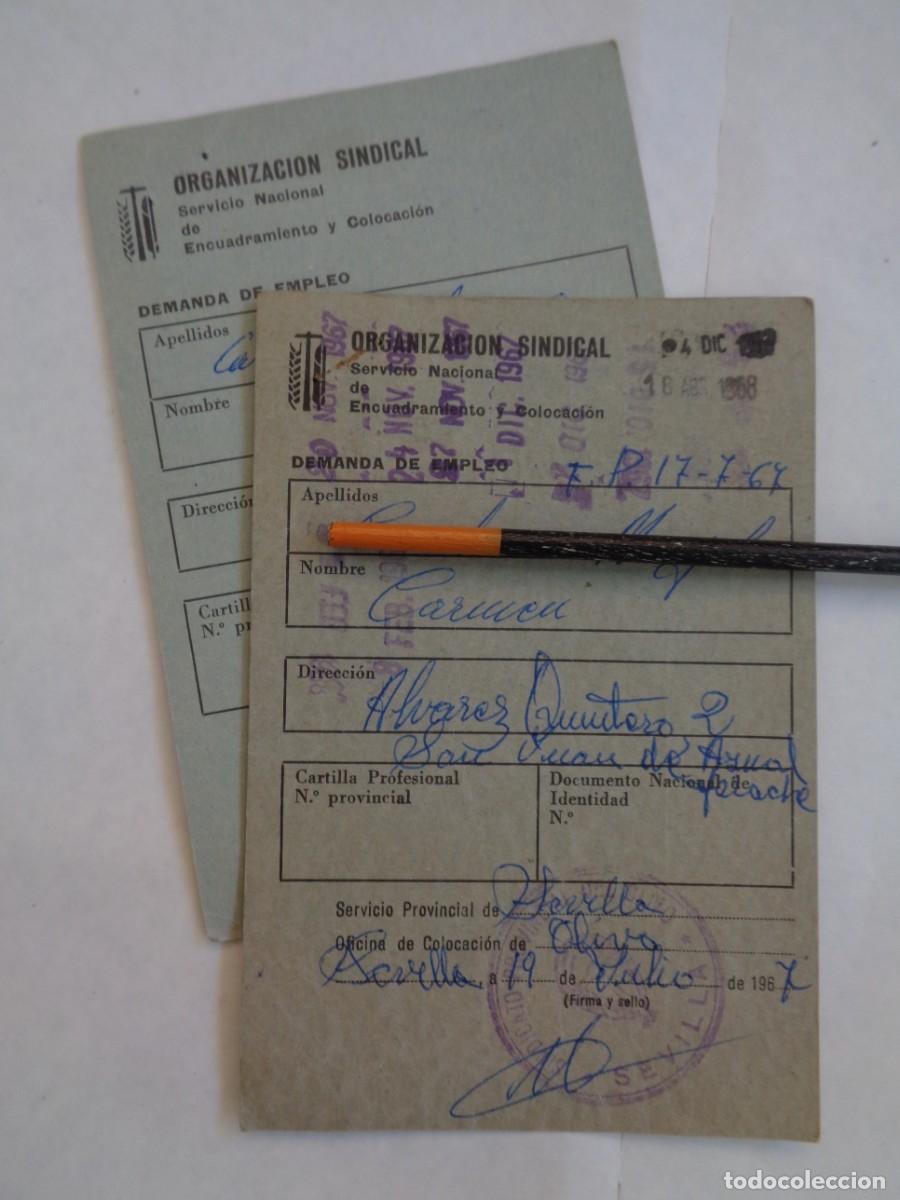 ORGANIZACION SINDICAL
Servicio Nacional
de
Encuadramiento y Colocación
DEMANDA DE EMPLEO
Apellidos
Nombre
Dirección
Cartilla
N.º
ORGANIZACION SINDICAL
Servicio Nacional
de
Encuadramiento y Colocación
4 DIC
18 1968
NOV. 1967
24 NOV. 1967
27 NOV. 1967
DIC. 1967
DEMANDA DE EMPLEO
F. P. 17-7-67
Apellidos
Nombre
Carmen
Dirección
Alvarez Quintero, 2
San Juan de Aznal
farache
Cartilla Profesional
N.º provincial
Documento Nacional de
Identidad
N.º
Servicio Provincial de Sevilla
Oficina de Colocación de Oliva
Sevilla, a 19 de Julio de 1967
(Firma y sello)
SEVILLA
todocoleccion